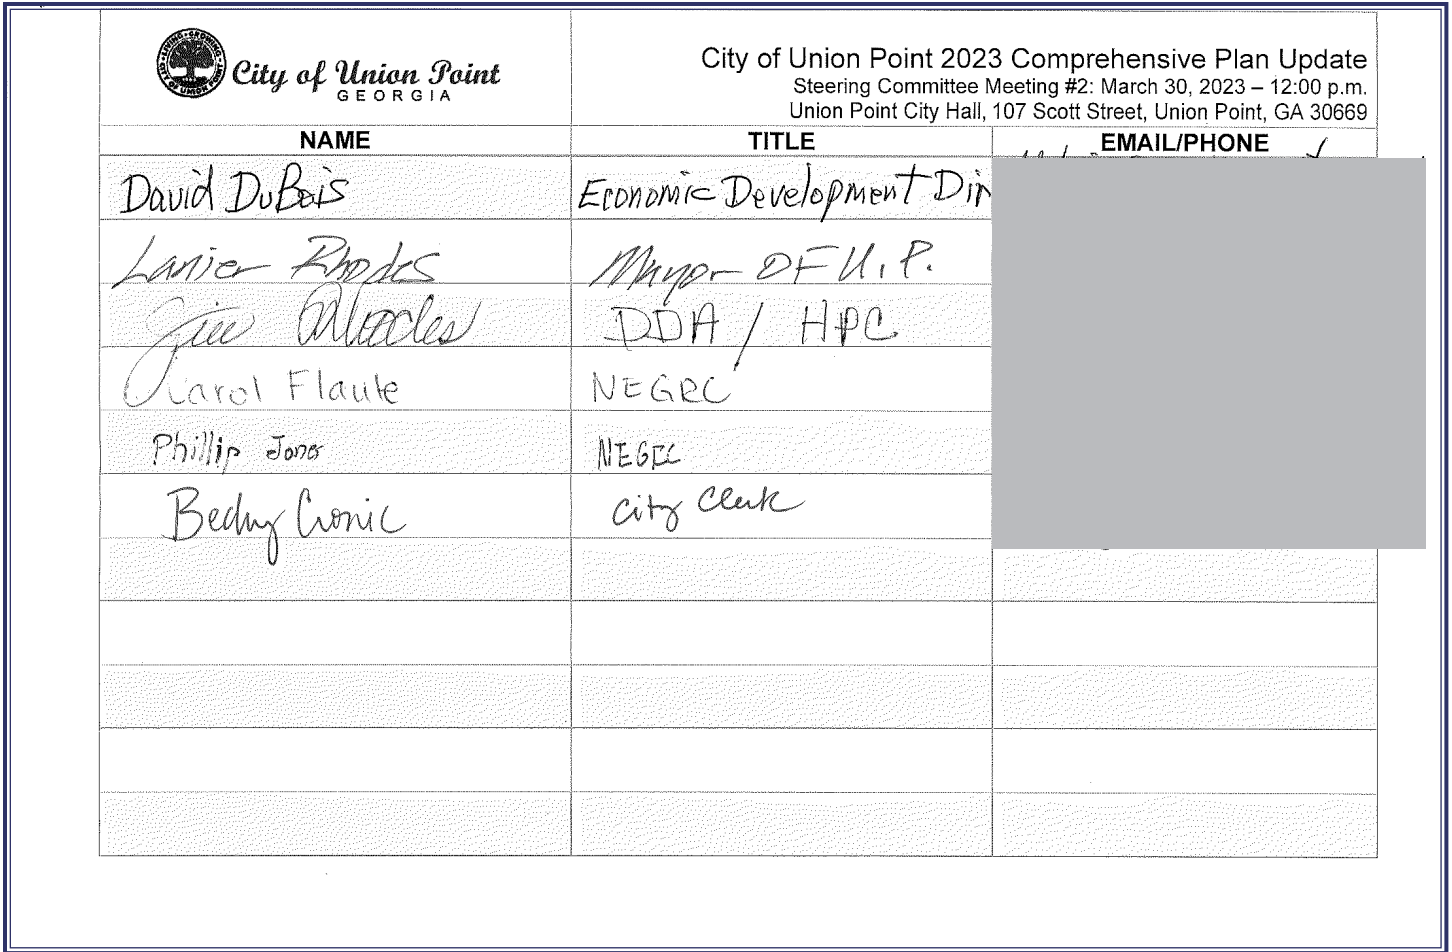 LIVING • GROWING
CITY OF UNION POINT
City of Union Point
GEORGIA
City of Union Point 2023 Comprehensive Plan Update
Steering Committee Meeting #2: March 30, 2023 – 12:00 p.m.
Union Point City Hall, 107 Scott Street, Union Point, GA 30669
NAME TITLE EMAIL/PHONE
David DuBois Economic Development Dir
Lanier Rhodes Mayor OF U.P.
Rhodes DDA / HPC
Carol Flaute NEGRC
Phillip Jones NEGRC
Becky Cronic City Clerk